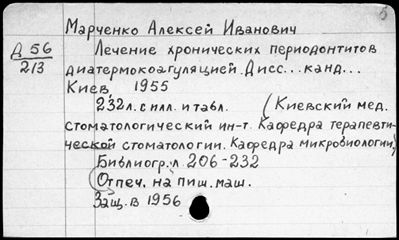 Марченко Алексей Иванович
Д 56
213
Лечение хронических периодонтитов
диатермокоагуляцией. Дисс... канд...
Киев, 1955
232 л. с илл. и табл. (Киевский мед.
стоматологический ин-т. Кафедра терапевти-
ческой стоматологии. Кафедра микробиологии)
Библиогр. л. 206-232
Отпеч. на пиш. маш.
Защ. в 1956